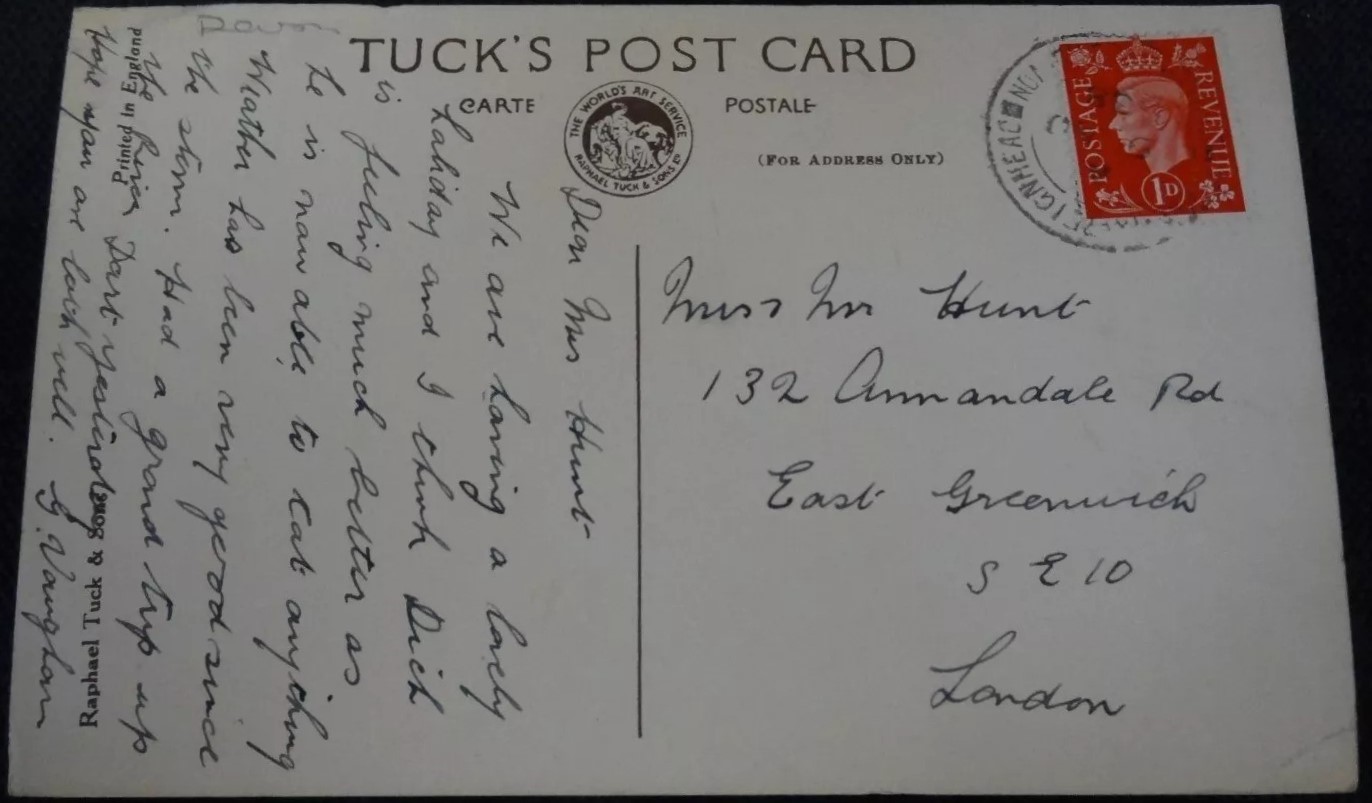 Devon
TUCK'S POST CARD
CARTE POSTALE
THE WORLD'S ART SERVICE
RAPHAEL TUCK & SONS LTD
(FOR ADDRESS ONLY)
POSTAGE REVENUE
1D
Dear Mrs Hunt
We are having a lovely
holiday and I think Dick
is feeling much better as
he is now able to eat anything
Weather has been very good since
the storm. Had a grand trip up
the River Dart yesterday
Hope you are both well. G. Vaughan
Miss M Hunt
132 Annandale Rd
East Greenwich
S E 10
London
Raphael Tuck & Sons
Printed in England